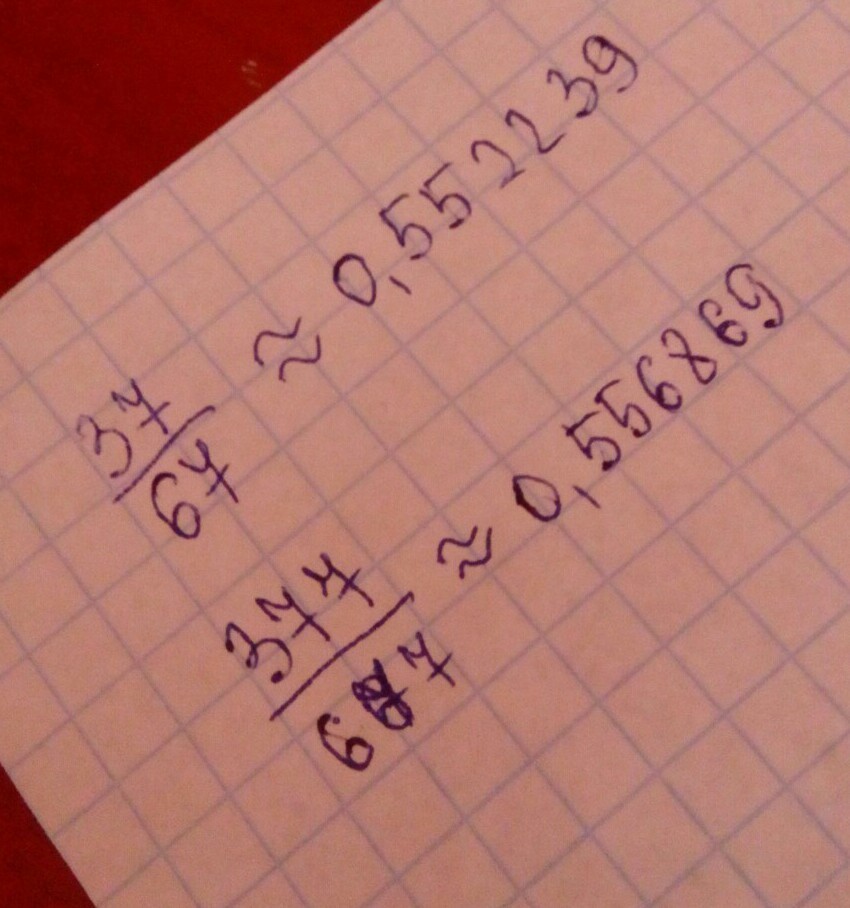 37/67 ≈ 0,552239
377/677 ≈ 0,556869